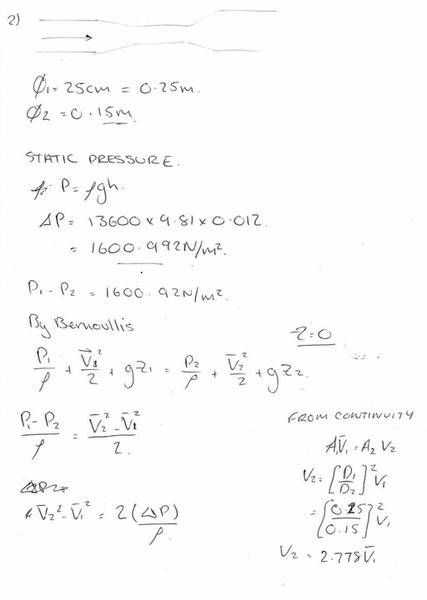 2)
Ø1 = 25cm = 0.25m.
Ø2 = 0.15m.
STATIC PRESSURE.
P = ρgh.
ΔP = 13600 × 9.81 × 0.012
= 1600.992N/m².
P1 - P2 = 1600.92N/m².
By Bernoullis
z=0
P1/ρ + V̄1²/2 + gz1 = P2/ρ + V̄2²/2 + gz2.
(P1 - P2)/ρ = (V̄2² - V̄1²)/2.
V̄2² - V̄1² = 2(ΔP)/ρ.
FROM CONTINUITY
A1V̄1 = A2 V2
V2 = [D1/D2]² V1
= [0.25/0.15]² V1
V2 = 2.778V̄1